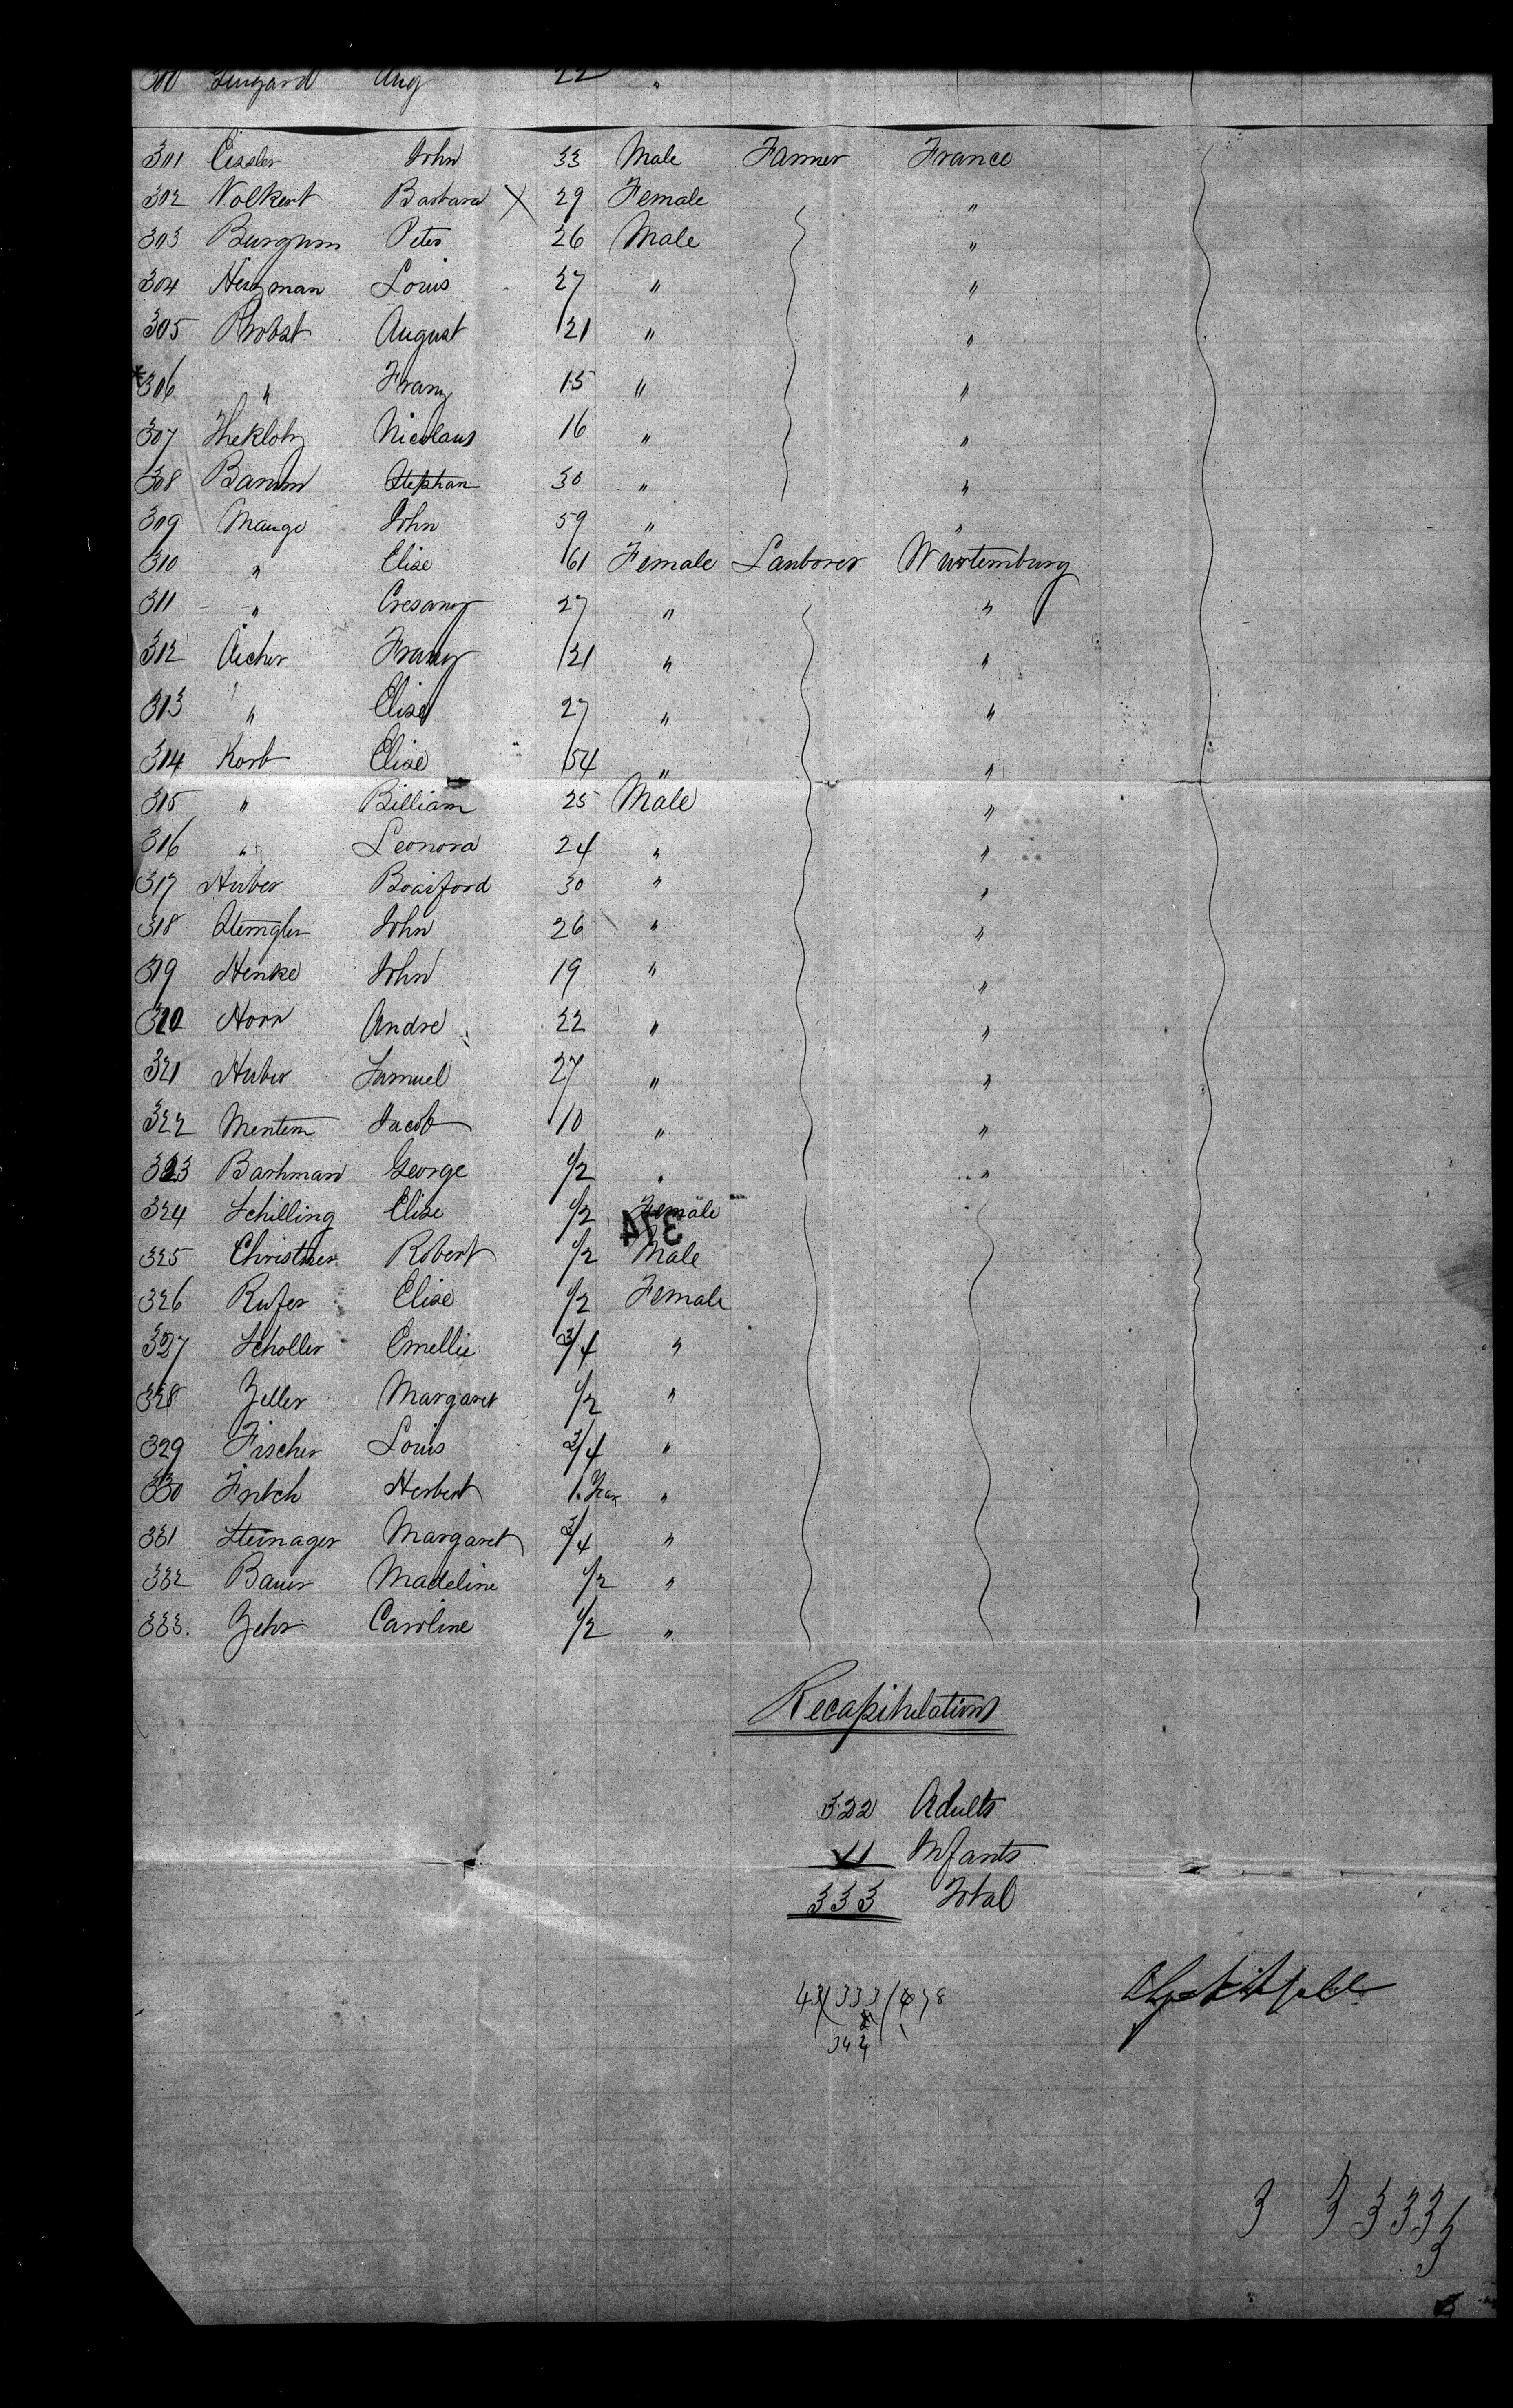 300 Aug 22 "
301 Eissler John 33 Male Farmer France
302 Volkert Barbara X 29 Female "
303 Burgum Peter 26 Male "
304 Herzman Louis 27 " "
305 Probst August 21 " "
306 " Franz 15 " "
307 Nicolaus 16 " "
308 Stephan 30 " "
309 Mange John 59 " "
310 " Elise 61 Female Lauborer Würtemburg
311 " 27 " "
312 Aicher Franz 31 " "
313 " Elise 27 " "
314 Korb Elise 54 " "
315 " Billiam 25 Male "
316 " Leonora 24 " "
317 Huber 30 " "
318 John 26 " "
319 Henke John 19 " "
320 Horn Andre 22 " "
321 Huber Samuel 27 " "
322 Jacob 10 " "
323 Bachman George 1/2 " "
324 Schilling Elise 1/2 Female
325 Christner Robert 1/2 Male
326 Rufer Elise 1/2 Female
327 Scholler Emellie 3/4 "
328 Zeller Margaret 1/2 "
329 Fischer Louis 3/4 "
330 Fritch Herbert 1 Year "
331 Steinager Margaret 3/4 "
332 Bauer Madeline 1/2 "
333. Zehr Caroline 1/2 "
Recapitulation
322 Adults
11 Infants
333 Total
3 3 3 3 3
3